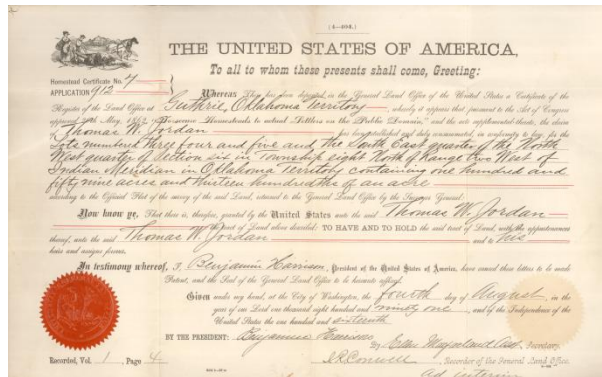 (4—404.)
THE UNITED STATES OF AMERICA,
To all to whom these presents shall come, Greeting:
Homestead Certificate No. 7
APPLICATION 912
Whereas There has been deposited in the General Land Office of the United States a Certificate of the
Register of the Land Office at Guthrie, Oklahoma Territory, whereby it appears that, pursuant to the Act of Congress
approved 20th May, 1862, "To secure Homesteads to actual Settlers on the Public Domain," and the acts supplemental thereto, the claim
of Thomas W. Jordan has been established and duly consummated, in conformity to law, for the
Lots numbered three four and five and the South East quarter of the North
West quarter of Section six in Township eight North of Range two West of
Indian Meridian in Oklahoma Territory containing one hundred and
fifty nine acres and thirteen hundredths of an acre
according to the Official Plat of the survey of the said Land, returned to the General Land Office by the Surveyor General:
Now know ye, That there is, therefore, granted by the United States unto the said Thomas W. Jordan
the tract of Land above described: TO HAVE AND TO HOLD the said tract of Land, with the appurtenances
thereof, unto the said Thomas W. Jordan and to his
heirs and assigns forever.
In testimony whereof, I, Benjamin Harrison, President of the United States of America, have caused these letters to be made
Patent, and the Seal of the General Land Office to be hereunto affixed.
Given under my hand, at the City of Washington, the fourth day of August, in the
year of our Lord one thousand eight hundred and ninety one, and of the Independence of the
United States the one hundred and sixteenth
BY THE PRESIDENT: Benjamin Harrison
By Secretary.
I. R. Conwell, Recorder of the General Land Office.
Ad interim
Recorded, Vol. 1, Page 4